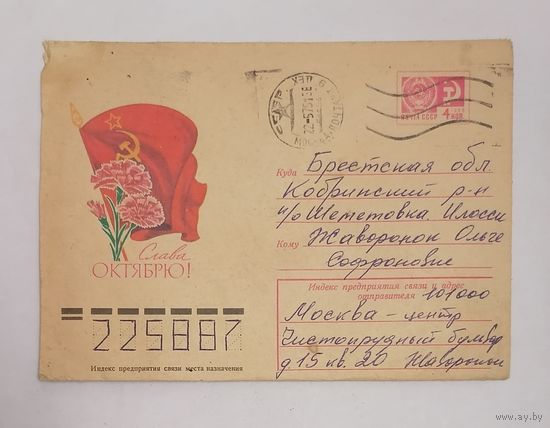 ПОЧТА СССР
4 КОП
22-5751
МОСКВА ПОЧТАМТ
Куда Брестская обл.
Кобринский р-н
п/о Шеметовка. Илосск
Кому Жаворонок Ольге
Софроновне
Слава
ОКТЯБРЮ!
Индекс предприятия связи и адрес
отправителя 101000
Москва - центр
Чистопрудный бульвар
д 15 кв. 20 Жаворонок
225887
Индекс предприятия связи места назначения
www.ay.by